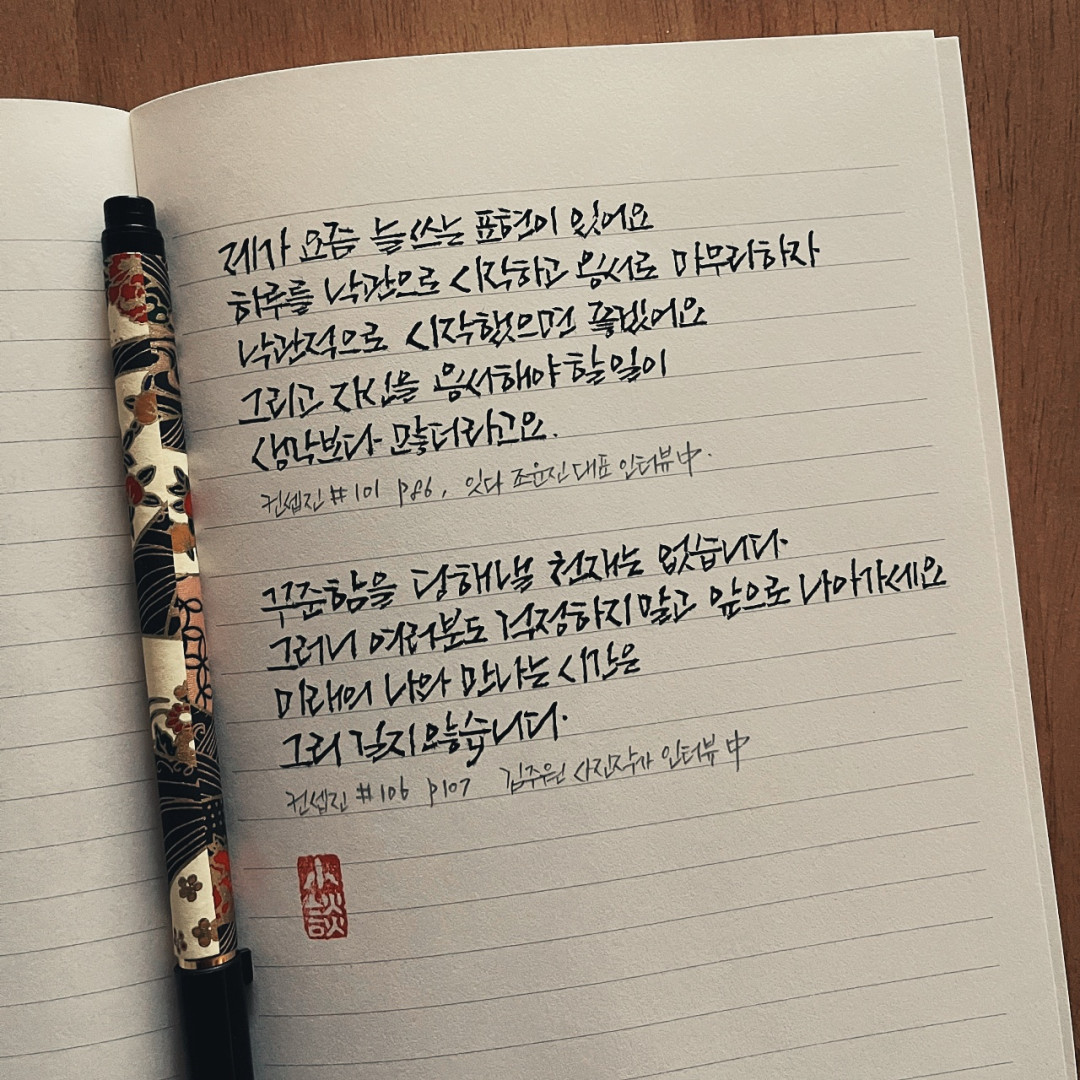 제가 요즘 늘 쓰는 표현이 있어요
하루를 낙관으로 시작하고 용서로 마무리하자
낙관적으로 시작했으면 좋겠어요
그리고 자신을 용서해야할일이
생각보다 많더라고요.
컨셉진 #101 p86, 잇다 조윤진 대표 인터뷰 中.
꾸준함을 당해낼 천재는 없습니다.
그러니 여러분도 걱정하지 말고 앞으로 나아가세요
미래의 나와 만나는 시간은
그리 길지 않습니다.
컨셉진 #106 p107 김주원 사진작가 인터뷰 中
小談